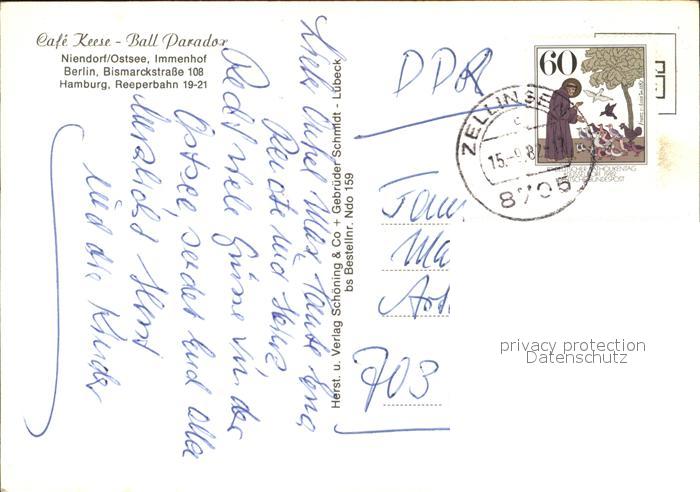 Café Keese - Ball Paradox
Niendorf/Ostsee, Immenhof
Berlin, Bismarckstraße 108
Hamburg, Reeperbahn 19-21
Liebe Onkel Max, Tante
und
Recht viele Grüsse von der
Ostsee, sendet Euch alle
herzlichst Horst
und die Kinder
Herst. u. Verlag Schöning & Co + Gebrüder Schmidt - Lübeck
bs Bestellnr. Ndo 159
DDR
60
ZELLINGE
c
15.-9.82
8705
DEUTSCHE BUNDESPOST
Fam
Ma
703
privacy protection
Datenschutz